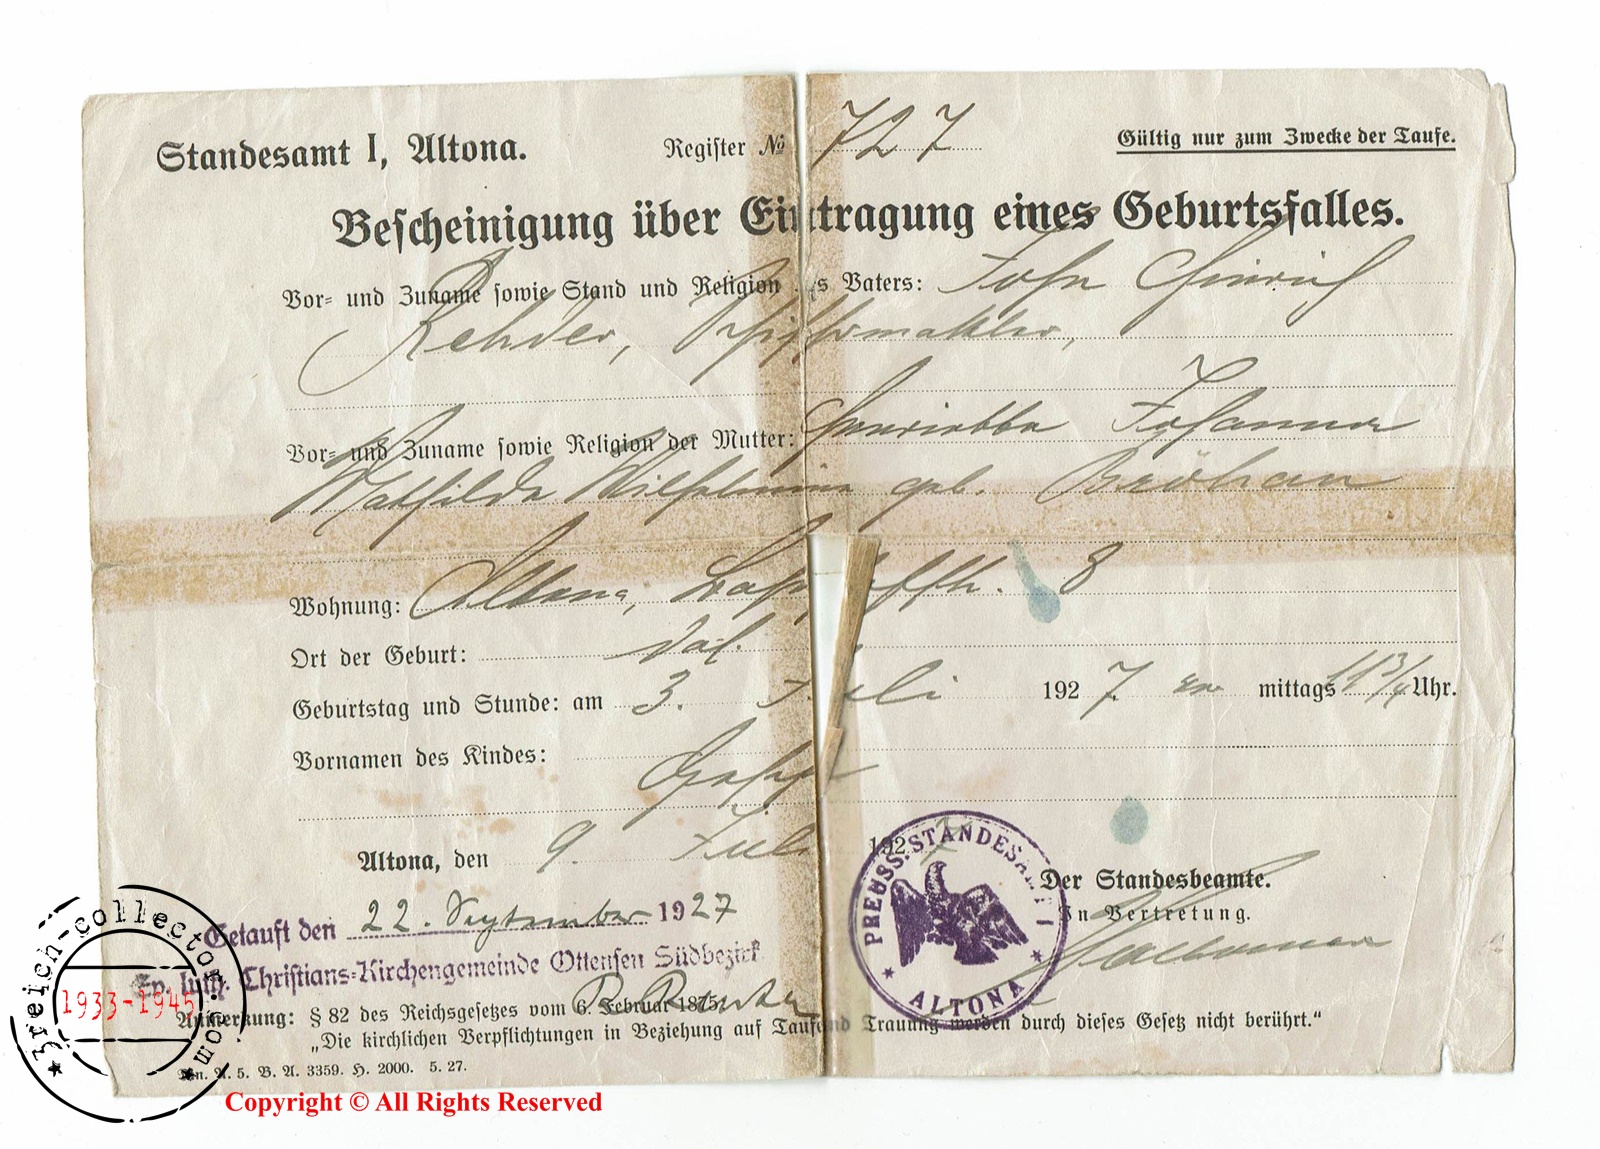 Standesamt I, Altona. Register № 727 Gültig nur zum Zwecke der Taufe.
Bescheinigung über Eintragung eines Geburtsfalles.
Vor- und Zuname sowie Stand und Religion des Vaters: John Hinrich
Rehder,
Vor- und Zuname sowie Religion der Mutter: Henriette Johanna
Mathilde Wilhelmine geb. Bröhan
Wohnung: Altona, 8
Ort der Geburt: das.
Geburtstag und Stunde: am 3. Juli 1927 vor mittags 11 3/4 Uhr.
Vornamen des Kindes:
Altona, den 9. Juli 1927
PREUSS. STANDESAMT I
* ALTONA *
Der Standesbeamte.
In Vertretung.
Getauft den 22. September 1927
Ev. luth. Christians-Kirchengemeinde Ottensen Südbezirk
Anmerkung: § 82 des Reichsgesetzes vom 6. Februar 1875:
„Die kirchlichen Verpflichtungen in Beziehung auf Taufe und Trauung werden durch dieses Gesetz nicht berührt.“
A. 5. B. A. 3359. H. 2000. 5. 27.
*3reich-collector.com*
1933-1945
Copyright © All Rights Reserved